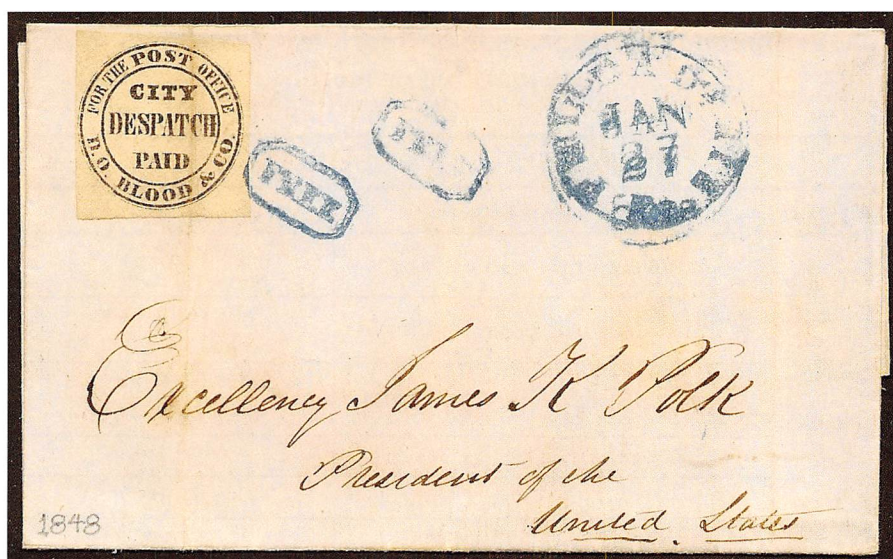 FOR THE POST OFFICE
CITY
DESPATCH
PAID
D.O. BLOOD & CO.
FREE
FREE
JAN
27
Excellency James K Polk
President of the
United States
1848